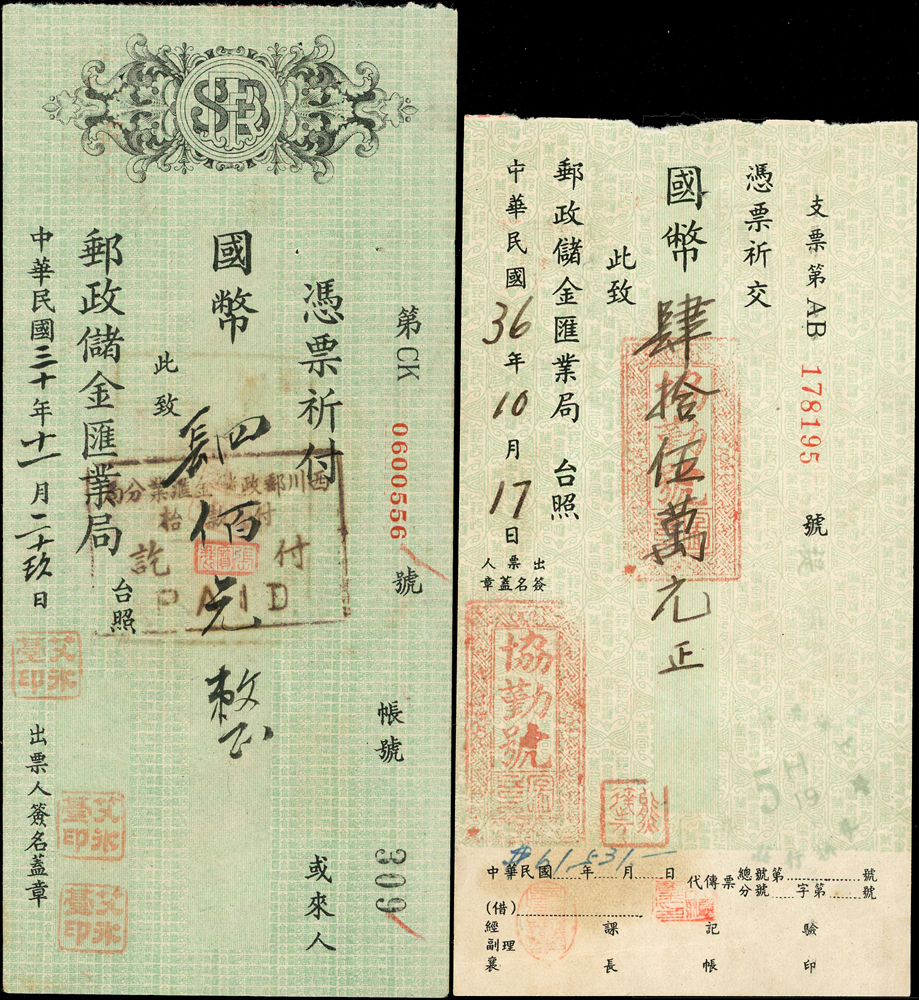 SRB
第CK 0600556 號
帳號 309
憑票祈付
或來人
國幣
四佰元整
此致
郵政儲金匯業局 台照
中華民國三十年十一月二十玖日
出票人簽名蓋章
西川郵政儲金匯業分局
付訖
PAID
艾氷臺印
艾氷臺印
艾氷臺印
支票第 AB 178195 號
憑票祈交
國幣肆拾伍萬元正
此致
郵政儲金匯業局 台照
中華民國36年10月17日
出票人
簽名蓋章
協勤號
協勤號
#61,531-
中華民國 年 月 日
代傳票
總號第 號
分號 字第 號
(借)
經副襄理
課長
記帳
驗印